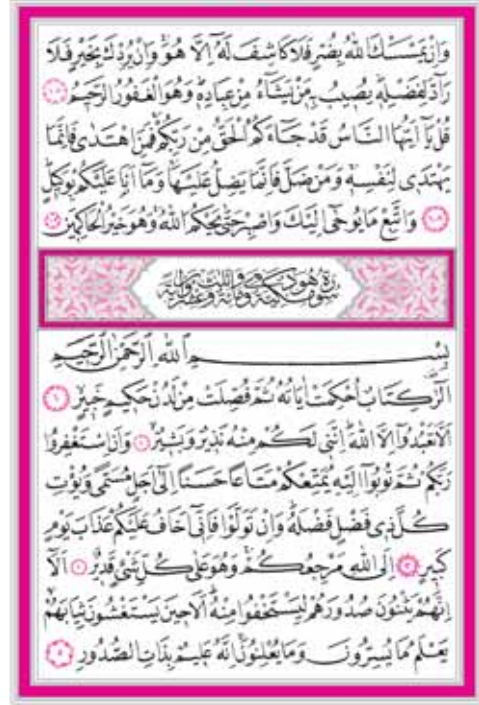 وَاِنْ يَمْسَسْكَ اللّٰهُ بِضُرٍّ فَلَا كَاشِفَ لَهُٓ اِلَّا هُوَۚ وَاِنْ يُرِدْكَ بِخَيْرٍ فَلَا
رَٓادَّ لِفَضْلِه۪ۜ يُص۪يبُ بِه۪ مَنْ يَشَٓاءُ مِنْ عِبَادِه۪ۜ وَهُوَ الْغَفُورُ الرَّح۪يمُ ﴿١٠٧﴾
قُلْ يَٓا اَيُّهَا النَّاسُ قَدْ جَٓاءَكُمُ الْحَقُّ مِنْ رَبِّكُمْۚ فَمَنِ اهْتَدٰى فَاِنَّمَا
يَهْتَد۪ي لِنَفْسِه۪ۚ وَمَنْ ضَلَّ فَاِنَّمَا يَضِلُّ عَلَيْهَاۚ وَمَٓا اَنَا۬ عَلَيْكُمْ بِوَك۪يلٍۜ
﴿١٠٨﴾ وَاتَّبِعْ مَا يُوحٰٓى اِلَيْكَ وَاصْبِرْ حَتّٰى يَحْكُمَ اللّٰهُۚ وَهُوَ خَيْرُ الْحَاكِم۪ينَ ﴿١٠٩﴾
سورة هود مكية وهي مائة وثلث وعشرون آية
بِسْمِ اللّٰهِ الرَّحْمٰنِ الرَّح۪يمِ
الٓرٰ۠ كِتَابٌ اُحْكِمَتْ اٰيَاتُهُ ثُمَّ فُصِّلَتْ مِنْ لَدُنْ حَك۪يمٍ خَب۪يرٍۙ ﴿١﴾
اَلَّا تَعْبُدُٓوا اِلَّا اللّٰهَۜ اِنَّن۪ي لَكُمْ مِنْهُ نَذ۪يرٌ وَبَش۪يرٌۙ ﴿٢﴾ وَاَنِ اسْتَغْفِرُوا
رَبَّكُمْ ثُمَّ تُوبُٓوا اِلَيْهِ يُمَتِّعْكُمْ مَتَاعًا حَسَنًا اِلٰٓى اَجَلٍ مُسَمًّى وَيُؤْتِ
كُلَّ ذ۪ي فَضْلٍ فَضْلَهُۜ وَاِنْ تَوَلَّوْا فَاِنّ۪ٓي اَخَافُ عَلَيْكُمْ عَذَابَ يَوْمٍ
كَب۪يرٍ ﴿٣﴾ اِلَى اللّٰهِ مَرْجِعُكُمْۚ وَهُوَ عَلٰى كُلِّ شَيْءٍ قَد۪يرٌ ﴿٤﴾ اَلَٓا
اِنَّهُمْ يَثْنُونَ صُدُورَهُمْ لِيَسْتَخْفُوا مِنْهُۜ اَلَا ح۪ينَ يَسْتَغْشُونَ ثِيَابَهُمْۙ
يَعْلَمُ مَا يُسِرُّونَ وَمَا يُعْلِنُونَۚ اِنَّهُ عَل۪يمٌ بِذَاتِ الصُّدُورِ ﴿٥﴾